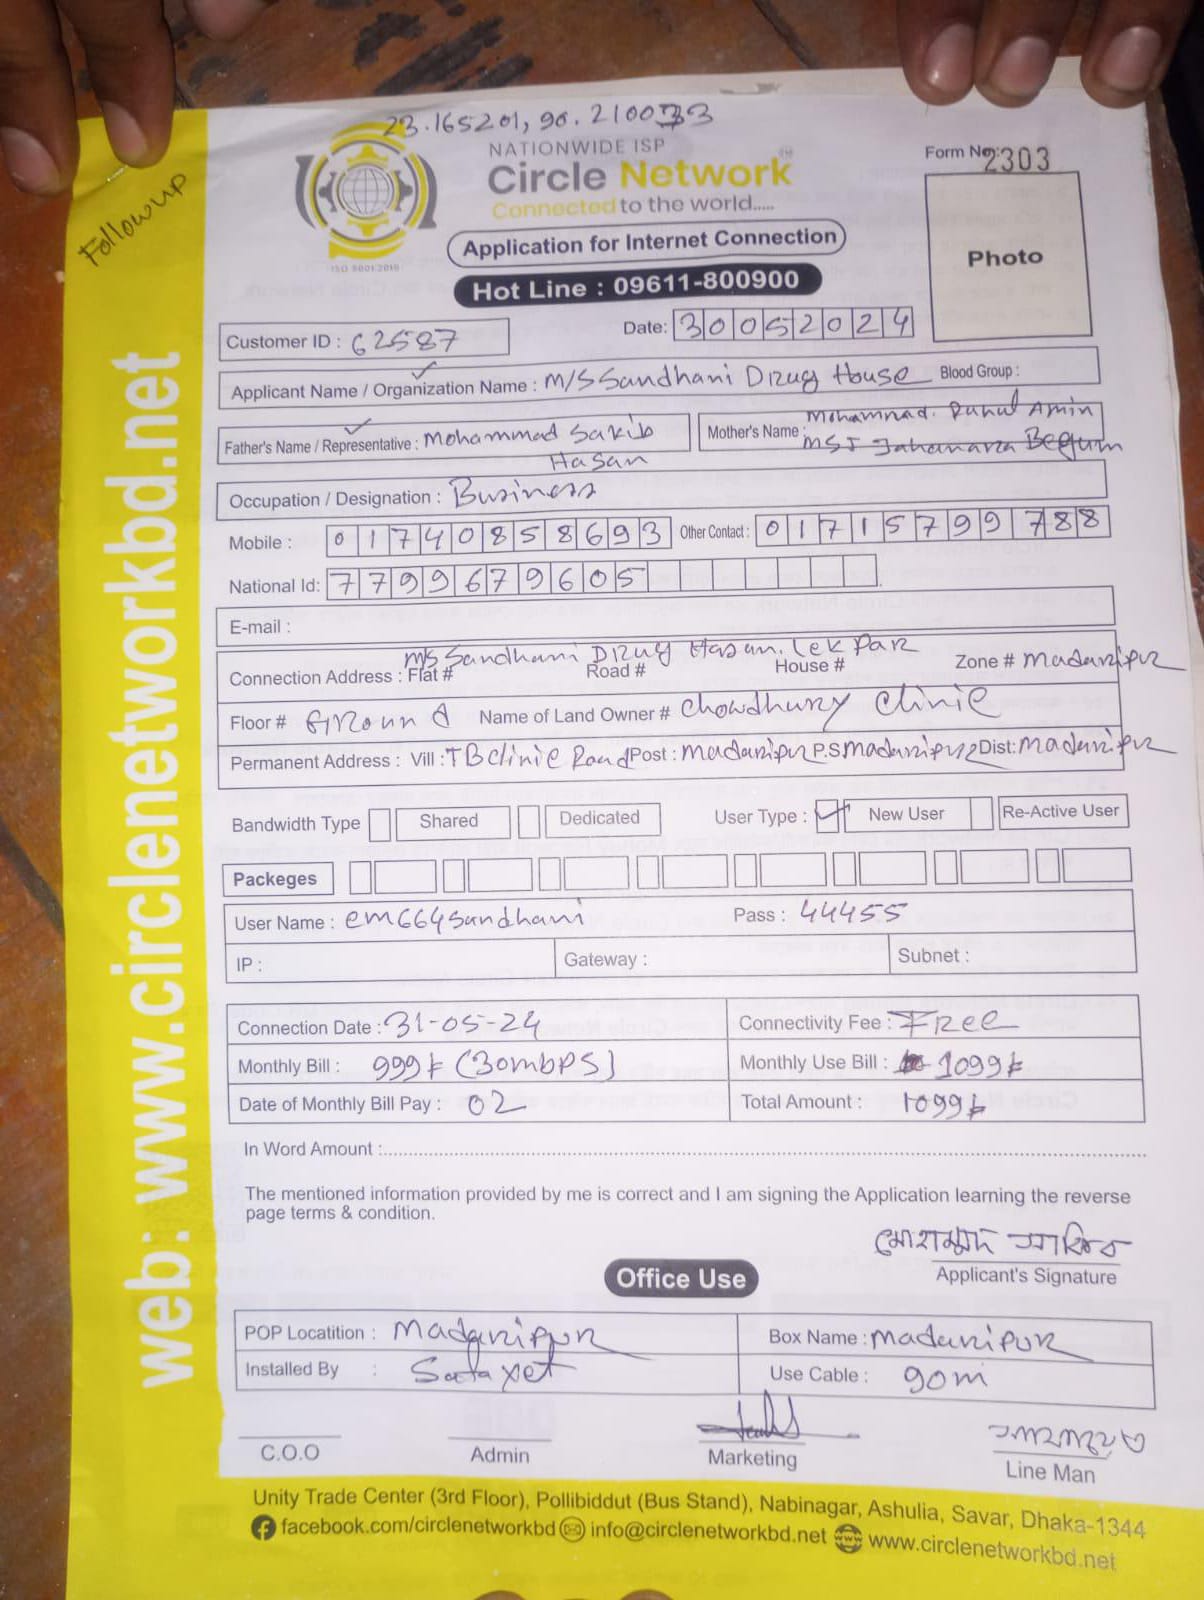 23.165201, 90.210033
Follow up
NATIONWIDE ISP
Circle Network
Connected to the world.....
ISO 9001:2015
Form No: 2303
Photo
Application for Internet Connection
Hot Line : 09611-800900
Customer ID : 62587
Date: 30052024
Applicant Name / Organization Name : M/S Sandhani Drug House Blood Group :
Father's Name / Representative : Mohammad Sakib Hasan
Mother's Name : Mohammad. Ruhul Amin
MST Jahanara Begum
Occupation / Designation : Business
Mobile : 01740858693 Other Contact : 01715799788
National Id: 7799679605
E-mail :
M/S Sandhani Drug Hasan. Lek Par
Connection Address : Flat # Road # House # Zone # Madaripur
Floor # Ground Name of Land Owner # Chowdhury Clinic
Permanent Address : Vill : TB Clinic Road Post : Madaripur P.S Madaripur Dist: Madaripur
Bandwidth Type Shared Dedicated User Type : New User Re-Active User
Packeges
User Name : em664sandhani Pass : 44455
IP : Gateway : Subnet :
Connection Date : 31-05-24 Connectivity Fee : Free
Monthly Bill : 999৳ (30mbps) Monthly Use Bill : 1099৳
Date of Monthly Bill Pay : 02 Total Amount : 1099৳
In Word Amount :
The mentioned information provided by me is correct and I am signing the Application learning the reverse
page terms & condition.
মোহাম্মদ সাকিব
Applicant's Signature
Office Use
POP Locatition : Madaripur Box Name : Madaripur
Installed By : Use Cable : 90m
C.O.O Admin Marketing Line Man
Unity Trade Center (3rd Floor), Pollibiddut (Bus Stand), Nabinagar, Ashulia, Savar, Dhaka-1344
facebook.com/circlenetworkbd info@circlenetworkbd.net www.circlenetworkbd.net
web: www.circlenetworkbd.net